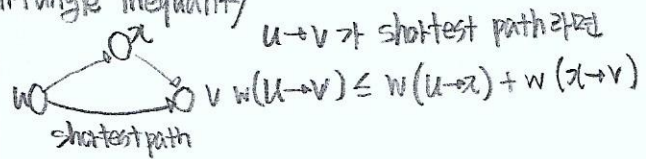 triangle inequality
x
u→v가 shortest path라면
u
v
w(u→v) ≤ w(u→x) + w(x→v)
shortest path